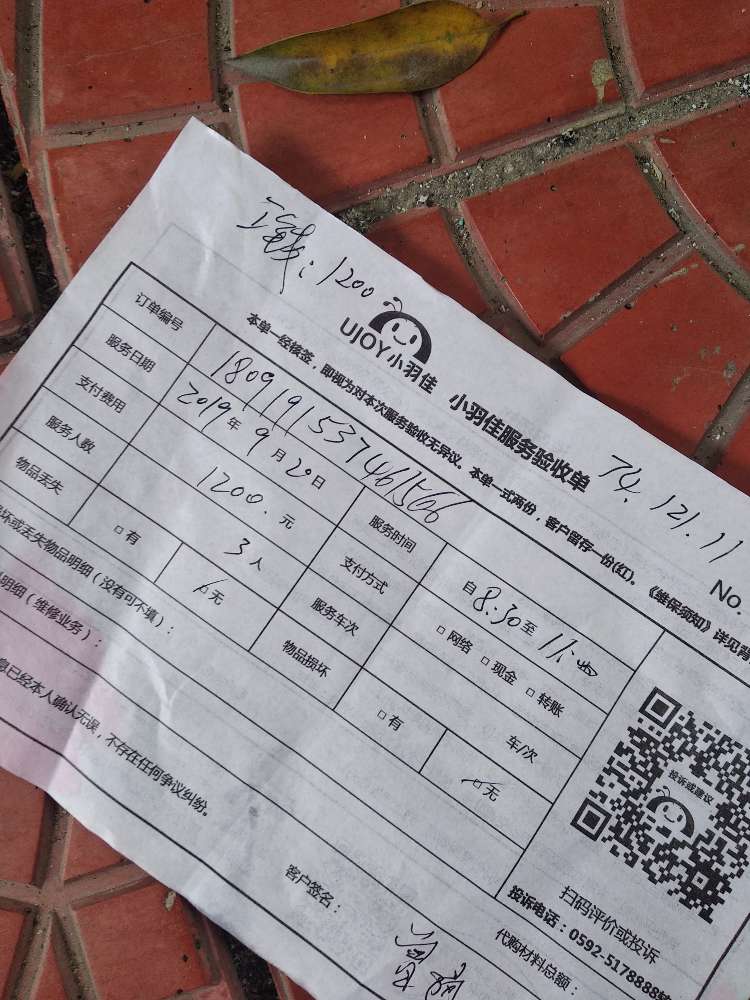 1200
UJOY小羽佳 小羽佳服务验收单
74.121.11
本单一经核签，即视为对本次服务验收无异议。本单一式两份，客户留存一份(红)。《维保须知》详见背
No.
订单编号 180919153746156
服务日期 2019年9月20日 服务时间 自8:30至11:
支付费用 1200.元 支付方式 □网络 □现金 □转账
服务人数 3人 服务车次 车/次
物品丢失 □有 无 物品损坏 □有 无
坏或丢失物品明细（没有可不填）：
明细（维修业务）：
息已经本人确认无误，不存在任何争议纠纷。
投诉或建议
扫码评价或投诉
投诉电话：0592-5178888
客户签名：
代购材料总额：